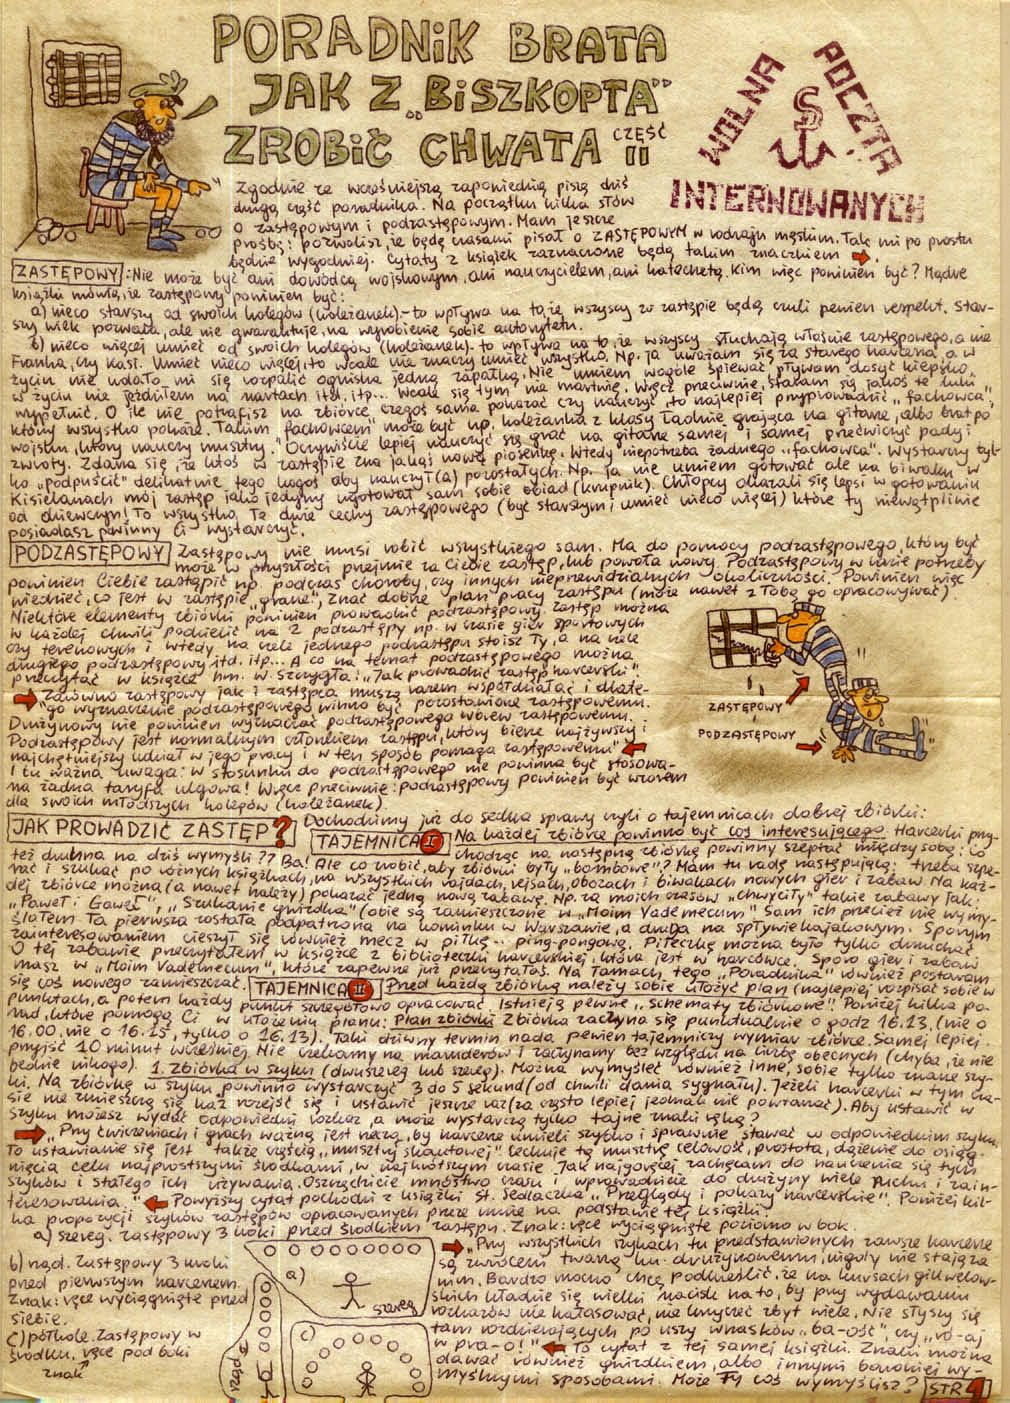 PORADNIK BRATA
JAK Z „BISZKOPTA"
ZROBIĆ CHWATA CZĘŚĆ II
WOLNA POCZTA
INTERNOWANYCH
Zgodnie ze wcześniejszą zapowiedzią piszę dziś
drugą część poradnika. Na początku kilka słów
o zastępowym i podzastępowym. Mam jeszcze
prośbę: pozwolisz, że będę czasami pisał o ZASTĘPOWYM w rodzaju męskim. Tak mi po prostu
będzie wygodniej. Cytaty z książek zaznaczone będą takim znaczkiem
ZASTĘPOWY: Nie może być ani dowódcą wojskowym, ani nauczycielem, ani katechetą. Kim więc powinien być? Mądre
książki mówią, że zastępowy powinien być:
a) nieco starszy od swoich kolegów (koleżanek) - to wpływa na to, że wszyscy w zastępie będą czuli pewien respekt. Star-
szy wiek pozwala, ale nie gwarantuje, na wyrobienie sobie autorytetu.
b) nieco więcej umieć od swoich kolegów (koleżanek) - to wpływa na to, że wszyscy słuchają właśnie zastępowego, a nie
Franka, czy Kasi. Umieć nieco więcej, to wcale nie znaczy umieć wszystko. Np. ja uważam się za starego harcerza, a w
życiu nie udało mi się rozpalić ogniska jedną zapałką. Nie umiem wogóle śpiewać, pływam dosyć kiepsko,
w życiu nie jeździłem na nartach itd., itp... Wcale się tym nie martwię. Wręcz przeciwnie, staram się jakoś te luki
wypełnić. O ile nie potrafisz na zbiórce czegoś sama pokazać czy nauczyć, to najlepiej przyprowadzić „fachowca",
który wszystko pokaże. Takim „fachowcem" może być np. koleżanka z klasy ładnie grająca na gitarze, albo brat po
wojsku, który nauczy musztry. Oczywiście lepiej nauczyć się grać na gitarze samej i samej przećwiczyć padyi
zwroty. Zdarza się, że ktoś w zastępie zna jakąś nową piosenkę. Wtedy niepotrzeba żadnego „fachowca". Wystarczy tyl-
ko „podpuścić" delikatnie tego kogoś aby nauczył(a) pozostałych. Np. ja nie umiem gotować ale na biwaku w
Kisielanach mój zastęp jako jedyny ugotował sam sobie obiad (krupnik). Chłopcy okazali się lepsi w gotowaniu
od dziewczyn! To wszystko. Te dwie cechy zastępowego (być starszym i umieć nieco więcej) które ty niewątpliwie
posiadasz powinny Ci wystarczyć.
PODZASTĘPOWY Zastępowy nie musi robić wszystkiego sam. Ma do pomocy podzastępowego, który być
może w przyszłości przejmie za Ciebie zastęp, lub powoła nowy. Podzastępowy w razie potrzeby
powinien Ciebie zastąpić np. podczas choroby, czy innych nieprzewidzianych okoliczności. Powinien więc
wiedzieć, co jest w zastępie „grane", znać dobrze plan pracy zastępu (może nawet z Tobą go opracowywać).
Niektóre elementy zbiórki powinien prowadzić podzastępowy. Zastęp można
w każdej chwili podzielić na 2 podzastępy np. w czasie gier sportowych
czy terenowych i wtedy na czele jednego podzastępu stoisz Ty, a na czele
drugiego podzastępowy itd. itp... A co na temat podzastępowego można
przeczytać w książce hm. W. Szczygła: „Jak prowadzić zastęp harcerski"
„Zarówno zastępowy jak i zastępca muszą razem współdziałać i dlate-
go wyznaczenie podzastępowego winno być pozostawione zastępowemu.
Drużynowy nie powinien wyznaczać podzastępowego wbrew zastępowemu.
Podzastępowy jest normalnym członkiem zastępu, który bierze najżywszy i
najchętniejszy udział w jego pracy i w ten sposób pomaga zastępowemu"
I tu ważna uwaga: w stosunku do podzastępowego nie powinna być stosowa-
na żadna taryfa ulgowa! Wręcz przeciwnie: podzastępowy powinien być wzorem
dla swoich młodszych kolegów (koleżanek).
ZASTĘPOWY
PODZASTĘPOWY
JAK PROWADZIĆ ZASTĘP? Dochodzimy już do sedna sprawy czyli o tajemnicach dobrej zbiórki:
TAJEMNICA I Na każdej zbiórce powinno być coś interesującego. Harcerki przy-
chodząc na następną zbiórkę powinny szeptać między sobą: Co
też druhna na dziś wymyśli?? Ba! Ale co zrobić, aby zbiórki były „bombowe"? Mam tu radę następującą: trzeba szpe-
rać i szukać po różnych książkach, na wszystkich rajdach, rejsach, obozach i biwakach nowych gier i zabaw. Na każ-
dej zbiórce można (a nawet należy) pokazać jedną nową zabawę. Np. za moich czasów „chwyciły" takie zabawy jak:
„Paweł i Gaweł", „Szukanie gwizdka" (obie są zamieszczone w „Moim Vademecum". Sam ich przecież nie wymy-
śliłem. Ta pierwsza została podpatrzona na kominku w Warszawie, a druga na spływie kajakowym. Sporym
zainteresowaniem cieszył się również mecz w piłkę... ping-pongową. Piłeczkę można było tylko dmuchać.
O tej zabawie przeczytałem w książce z biblioteczki harcerskiej, która jest w harcówce. Sporo gier i zabaw
masz w „Moim Vademecum", które zapewne już przeczytałaś. Na łamach tego „Poradnika" również postaram
się coś nowego zamieszczać. TAJEMNICA II Przed każdą zbiórką należy sobie ułożyć plan (najlepiej rozpisać sobie w
punktach, a potem każdy punkt szczegółowo opracować. Istnieją pewne „schematy zbiórkowe". Poniżej kilka po-
rad, które pomogą Ci w ułożeniu planu: Plan zbiórki Zbiórka zaczyna się punktualnie o godz 16.13. (nie o
16.00, nie o 16.15, tylko o 16.13). Taki dziwny termin nada pewien tajemniczy wymiar zbiórce. Samej lepiej
przyjść 10 minut wcześniej. Nie czekamy na maruderów i zaczynamy bez względu na liczbę obecnych (chyba, że nie
będzie nikogo). 1. Zbiórka w szyku (dwuszereg lub szereg). Można wymyśleć również inne, sobie tylko znane szy-
ki. Na zbiórkę w szyku powinno wystarczyć 3 do 5 sekund (od chwili dania sygnału). Jeżeli harcerki w tym cza-
sie nie zmieszczą się każ rozejść się i ustawić jeszcze raz (za często lepiej jednak nie powtarzać). Aby ustawić w
szyku możesz wydać odpowiedni rozkaz, a może wystarczą tylko tajne znaki ręką?
„Przy ćwiczeniach i grach ważną jest rzeczą, by harcerze umieli szybko i sprawnie stawać w odpowiednim szyku.
To ustawianie się jest także częścią „musztry skautowej" cechuje tą musztrę celowość, prostota, dążenie do osiąg-
nięcia celu najprostszymi środkami, w najkrótszym czasie. Jak najgoręcej zachęcam do nauczenia się tych
szyków i stałego ich używania. Oszczędzicie mnóstwo czasu i wprowadzicie do drużyny wiele ruchu i zain-
teresowania." Powyższy cytat pochodzi z książki St. Sedlaczka „Przeglądy i pokazy harcerskie". Poniżej kil-
ka propozycji szyków zastępów opracowanych przeze mnie na podstawie tej książki:
a) szereg. zastępowy 3 kroki przed środkiem zastępu. Znak: ręce wyciągnięte poziomo w bok.
b) rząd. Zastępowy 3 kroki
przed pierwszym harcerzem.
Znak: ręce wyciągnięte przed
siebie.
c) półkole. Zastępowy w
środku, ręce pod boki
znak
a)
szereg
rząd
c)
„Przy wszystkich szykach tu przedstawionych zawsze harcerze
są zwróceni twarzą ku drużynowemu, nigdy nie stają za
nim. Bardzo mocno chcę podkreślić, że na kursach gilwelow-
skich kładzie się wielki nacisk na to, by przy wydawaniu
rozkazów nie hałasować, nie krzyczeć zbyt wiele. Nie słyszy się
tam rozdzierających po uszy wrzasków „ba-ość", czy „ró-aj
w pra-o!" To cytat z tej samej książki. Znaki można
dawać również gwizdkiem, albo innymi bardziej wy-
myślnymi sposobami. Może Ty coś wymyślisz?
STR 1